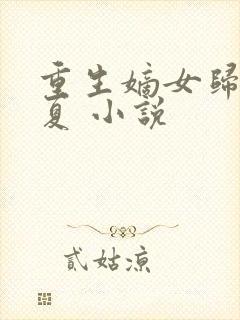 重生嫡女歸
夏 小說
貳姑涼